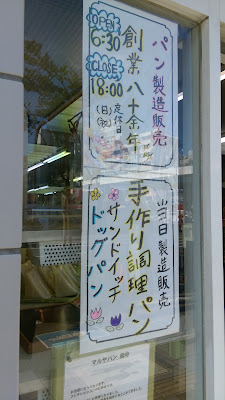 パン製造販売
創業八十余年
OPEN
6:30
CLOSE
18:00
定休日
(日)(祝)
当日製造販売
手作り調理パン
サンドイッチ
ドッグパン
マルヤパン